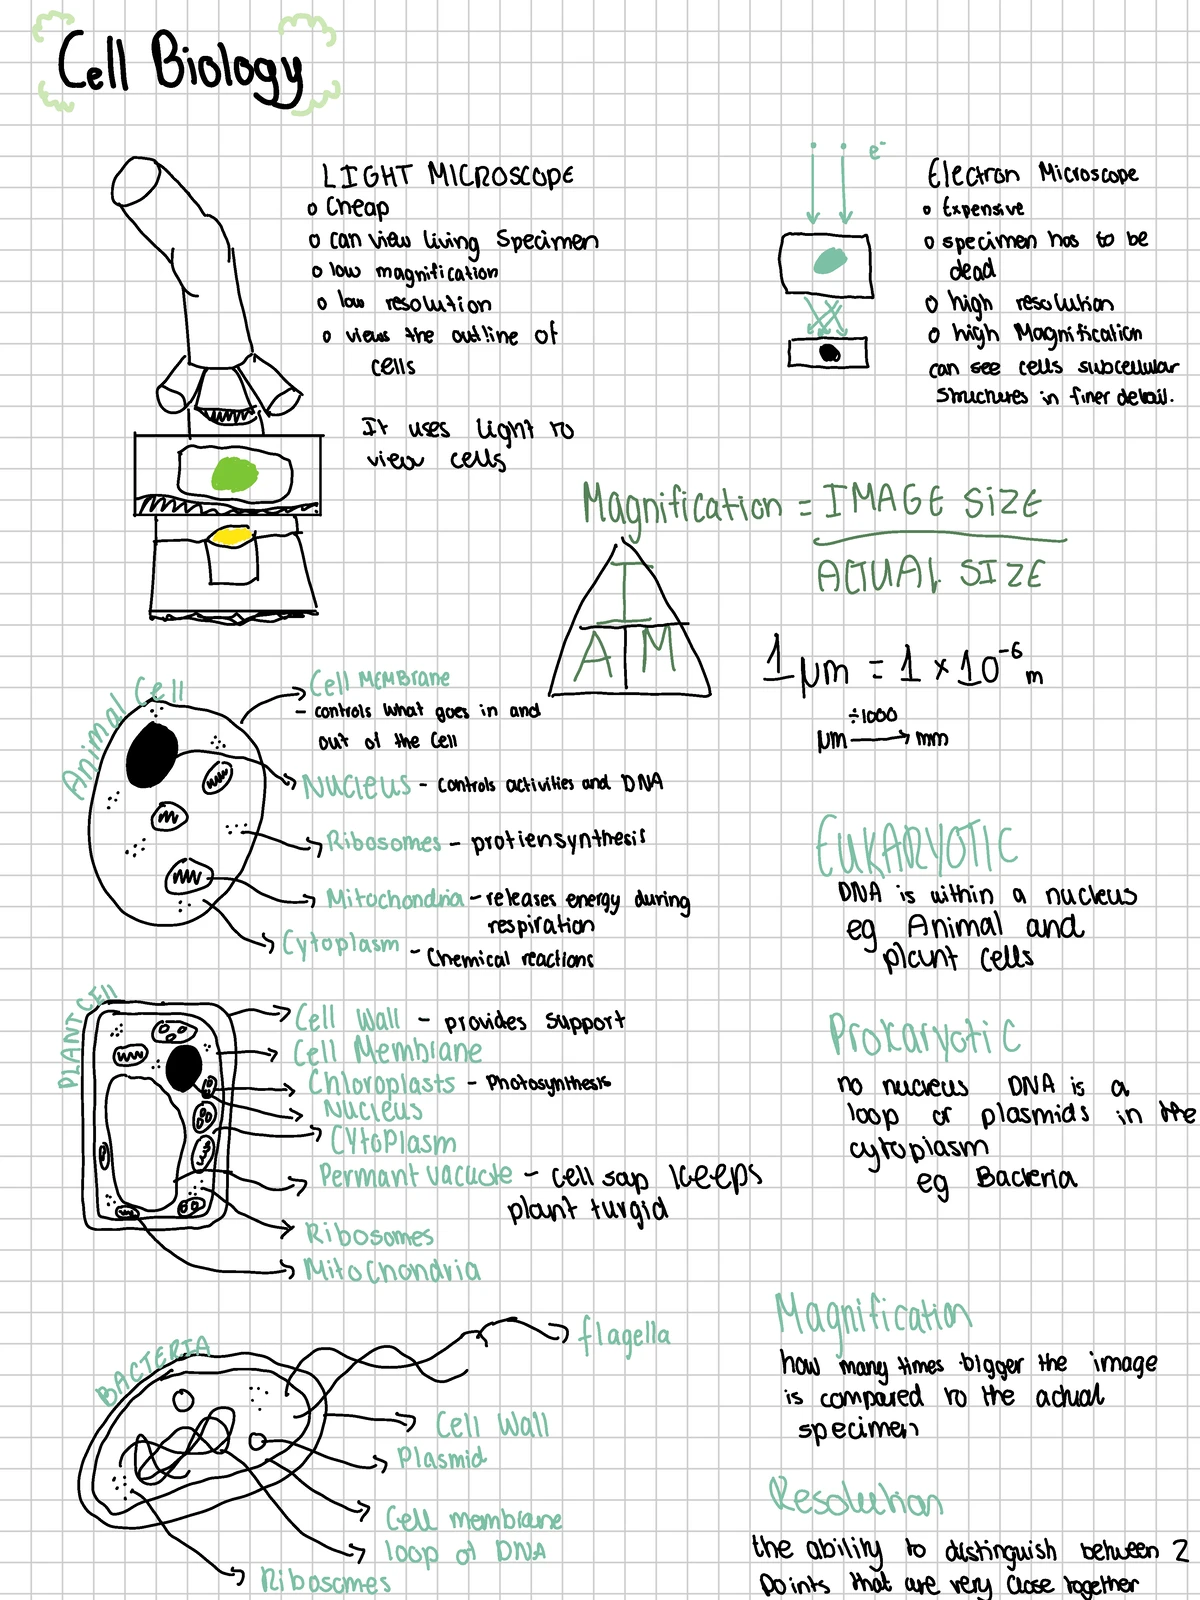 Cell Biology
LIGHT MICROSCOPE
o Cheap
o can view living Specimen
o low magnification
o low resolution
o views the outline of
cells
It uses light to
view cells
e-
Electron Microscope
o Expensive
o specimen has to be
dead
o high resolution
o high Magnification
can see cells subcellular
structures in finer detail.
Magnification = IMAGE SIZE
ACTUAL SIZE
I
A M
1 μm = 1 × 10⁻⁶ m
÷1000
μm → mm
Animal Cell
Cell MEMBRANE
- controls what goes in and
out of the cell
NUCLEUS - controls activities and DNA
Ribosomes - protiensynthesis
Mitochondria - releases energy during
respiration
Cytoplasm - Chemical reactions
EUKARYOTIC
DNA is within a nucleus
eg Animal and
plant cells
PLANT CELL
Cell Wall - provides support
Cell Membrane
Chloroplasts - Photosynthesis
Nucleus
CYtoPlasm
Permant vacuole - cell sap keeps
plant turgid
Ribosomes
MitoChondria
Prokaryotic
no nucleus DNA is a
loop or plasmids in the
cytoplasm
eg Bacteria
BACTERIA
flagella
Cell Wall
Plasmid
Cell membrane
loop of DNA
Ribosomes
Magnification
how many times bigger the image
is compared to the actual
specimen
Resolution
the ability to distinguish between 2
points that are very close together